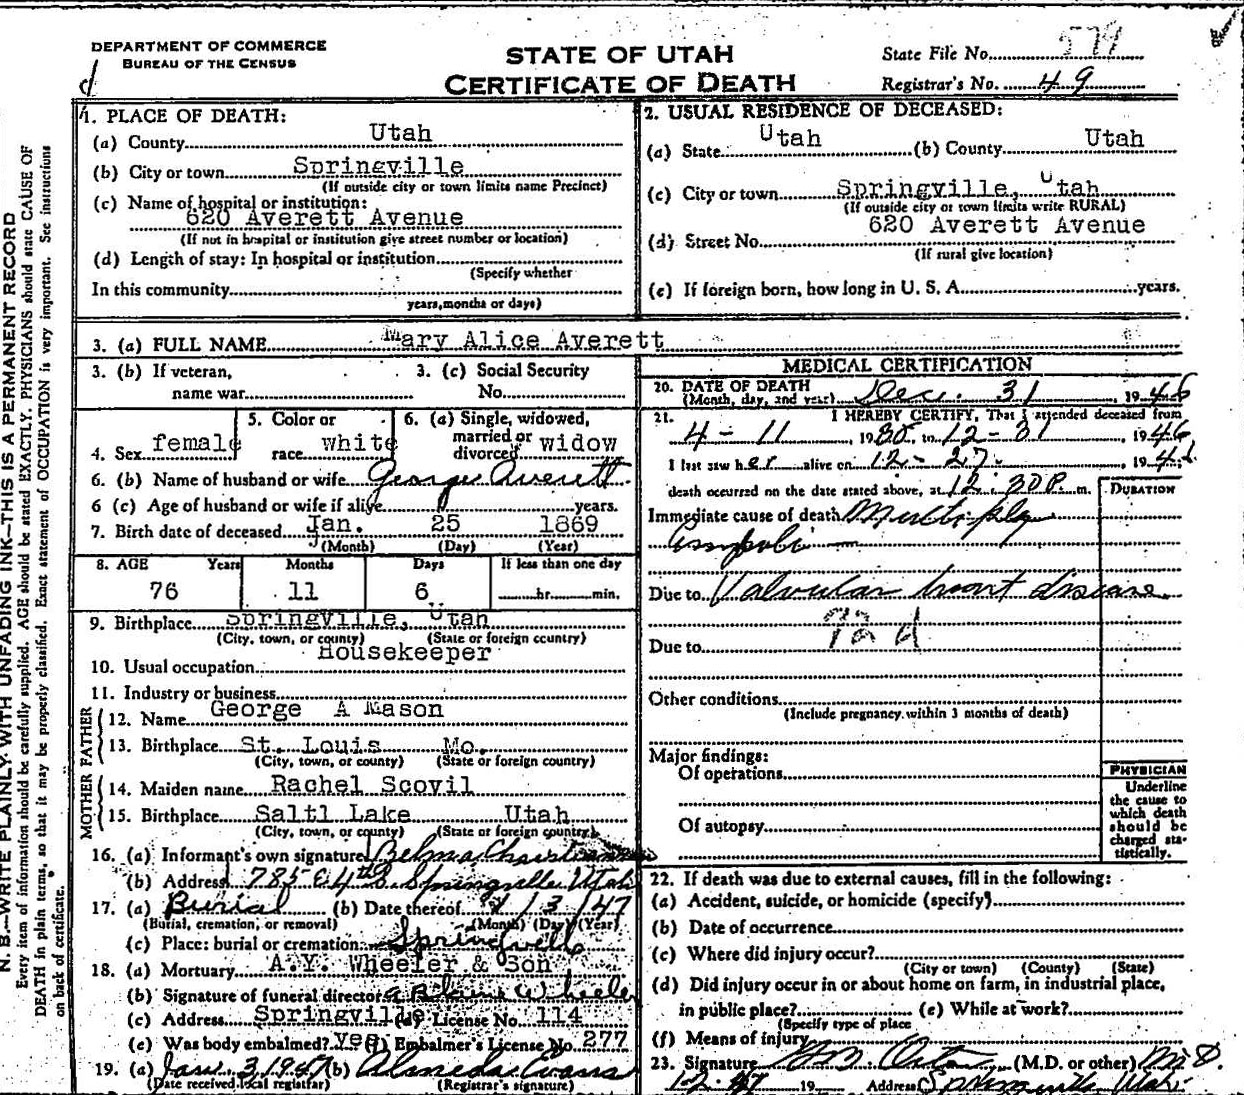 DEPARTMENT OF COMMERCE
BUREAU OF THE CENSUS
STATE OF UTAH
CERTIFICATE OF DEATH
State File No. 579
Registrar's No. 49
1. PLACE OF DEATH:
(a) County Utah
(b) City or town Springville
(If outside city or town limits name Precinct)
(c) Name of hospital or institution:
620 Averett Avenue
(If not in hospital or institution give street number or location)
(d) Length of stay: In hospital or institution
(Specify whether
In this community
years, months or days)
2. USUAL RESIDENCE OF DECEASED:
(a) State Utah (b) County Utah
(c) City or town Springville, Utah
(If outside city or town limits write RURAL)
620 Averett Avenue
(d) Street No.
(If rural give location)
(e) If foreign born, how long in U. S. A. years.
3. (a) FULL NAME Mary Alice Averett
3. (b) If veteran, 3. (c) Social Security
name war No.
4. Sex female 5. Color or race white 6. (a) Single, widowed, married or divorced widow
6. (b) Name of husband or wife George Averett
6 (c) Age of husband or wife if alive years.
7. Birth date of deceased Jan. 25 1869
(Month) (Day) (Year)
8. AGE Years Months Days If less than one day
76 11 6 hr. min.
9. Birthplace Springville, Utah
(City, town, or county) (State or foreign country)
10. Usual occupation Housekeeper
11. Industry or business
FATHER
12. Name George A Mason
13. Birthplace St. Louis Mo.
(City, town, or county) (State or foreign country)
MOTHER
14. Maiden name Rachel Scovil
15. Birthplace Saltl Lake Utah
(City, town, or county) (State or foreign country)
16. (a) Informant's own signature Belma
(b) Address 785 E 4th S. Springville Utah
17. (a) Burial (b) Date thereof 1/3/47
(Burial, cremation, or removal) (Month) (Day) (Year)
(c) Place: burial or cremation Springville
18. (a) Mortuary A.Y. Wheeler & Son
(b) Signature of funeral director Wheeler
(c) Address Springville (d) License No. 114
(e) Was body embalmed? yes (f) Embalmer's License No 277
19. (a) Jan. 3, 1947 (b) Almeda Evans
(Date received local registrar) (Registrar's signature)
MEDICAL CERTIFICATION
20. DATE OF DEATH
(Month, day, and year) Dec. 31, 1946
21. I HEREBY CERTIFY, That I attended deceased from
4-11, 19 to 12-31, 1946
I last saw her alive on 12-27, 194
death occurred on the date stated above, at 12:30 P. m.
DURATION
Immediate cause of death Multiple
Due to Valvular heart disease
92 d
Due to
Other conditions
(Include pregnancy within 3 months of death)
Major findings:
Of operations
Of autopsy
PHYSICIAN
Underline
the cause to
which death
should be
charged sta-
tistically.
22. If death was due to external causes, fill in the following:
(a) Accident, suicide, or homicide (specify)
(b) Date of occurrence
(c) Where did injury occur?
(City or town) (County) (State)
(d) Did injury occur in or about home on farm, in industrial place,
in public place? (e) While at work?
(Specify type of place
(f) Means of injury
23. Signature (M.D. or other) M D.
19 Address Springville Utah
N. B.—WRITE PLAINLY WITH UNFADING INK—THIS IS A PERMANENT RECORD
Every item of information should be carefully supplied. AGE should be stated EXACTLY. PHYSICIANS should state CAUSE OF
DEATH in plain terms, so that it may be properly classified. Exact statement of OCCUPATION is very important. See instructions
on back of certificate.